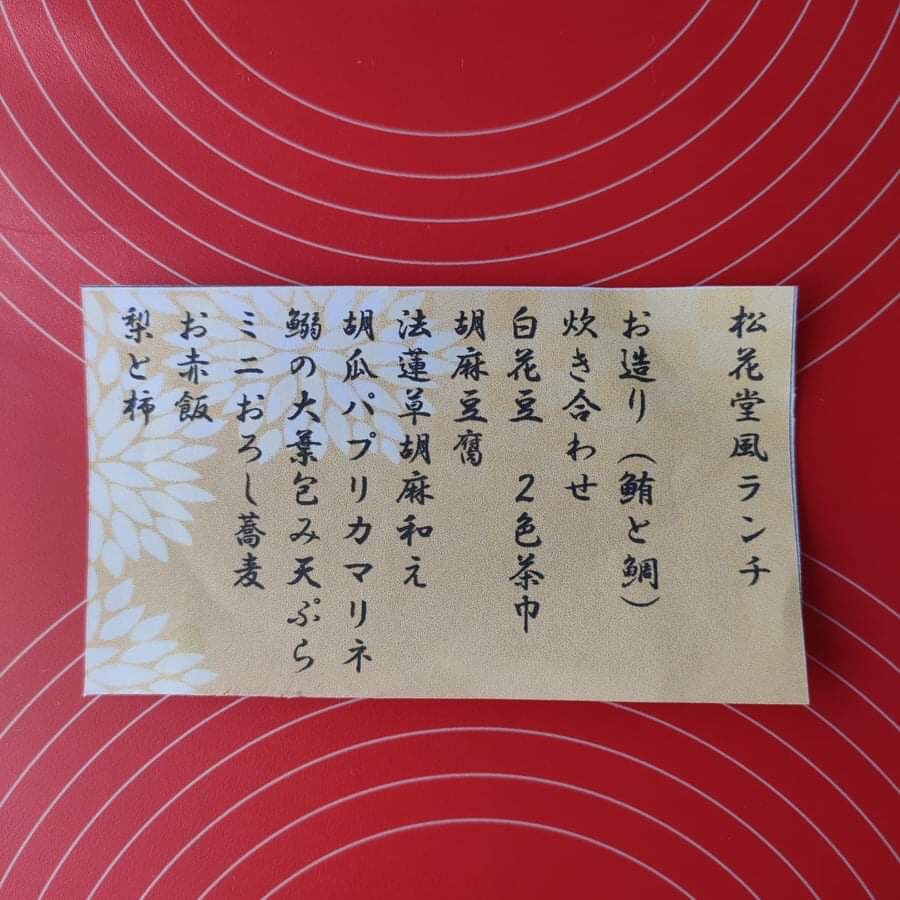 松花堂風ランチ
お造り（鮪と鯛）
炊き合わせ
白花豆　2色茶巾
胡麻豆腐
法蓮草胡麻和え
胡瓜パプリカマリネ
鰯の大葉包み天ぷら
ミニおろし蕎麦
お赤飯
梨と柿